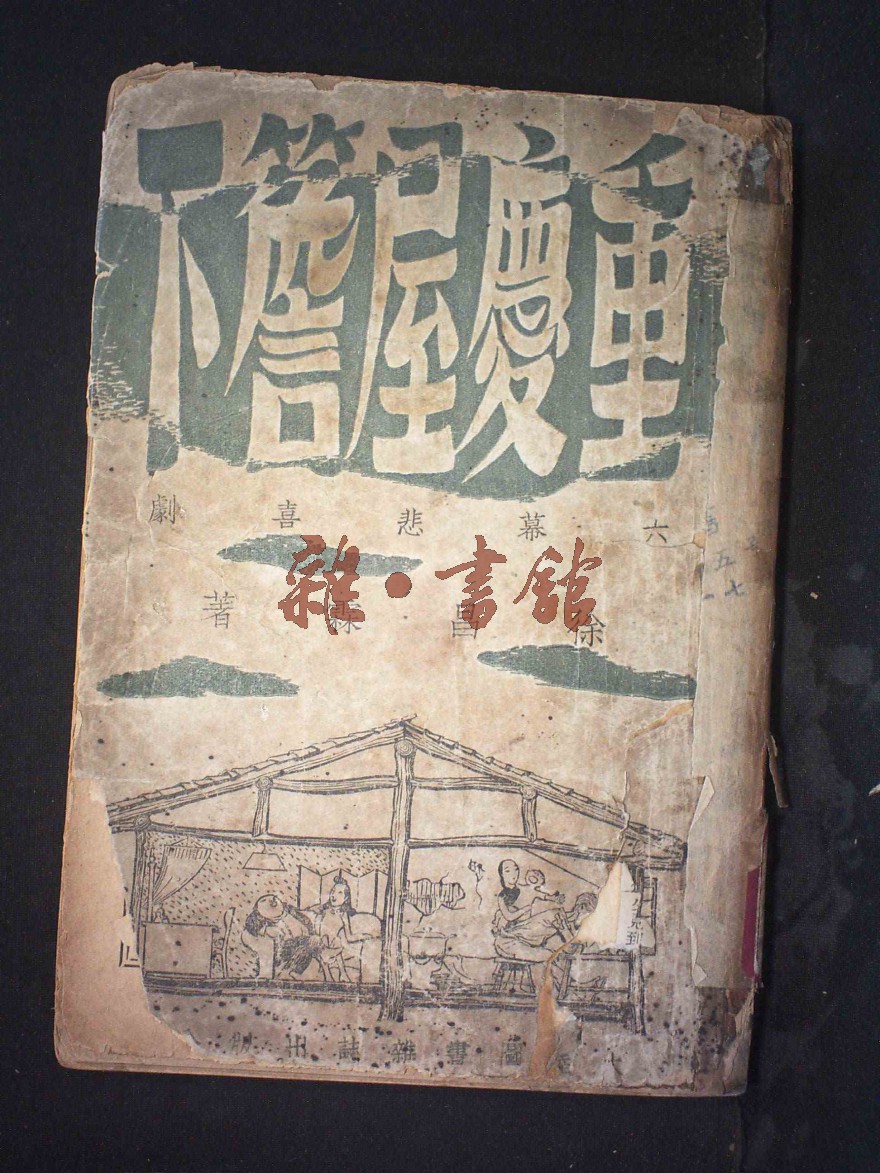 重慶屋簷下
六幕悲喜劇
雜·書館
徐昌霖著
五
七
圖書雜誌出版